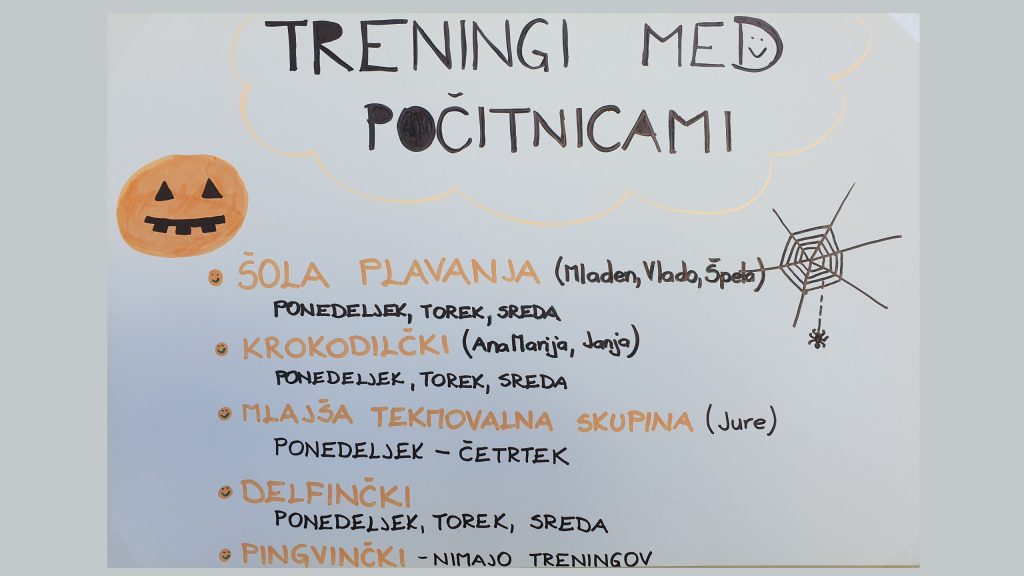 TRENINGI MED
POČITNICAMI
ŠOLA PLAVANJA (Mladen, Vlado, Špela)
PONEDELJEK, TOREK, SREDA
KROKODILČKI (Ana Marija, Janja)
PONEDELJEK, TOREK, SREDA
MLAJŠA TEKMOVALNA SKUPINA (Jure)
PONEDELJEK - ČETRTEK
DELFINČKI
PONEDELJEK, TOREK, SREDA
PINGVINČKI - NIMAJO TRENINGOV